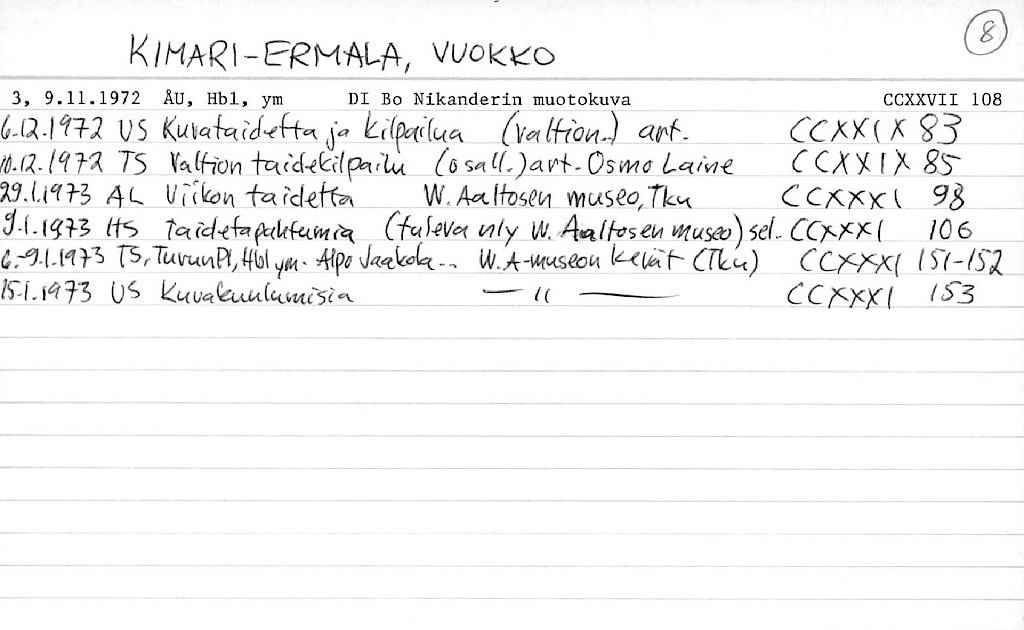 8
KIMARI-ERMALA, VUOKKO
3, 9.11.1972 ÅU, Hbl, ym DI Bo Nikanderin muotokuva CCXXVII 108
6.12.1972 US Kuvataidetta ja kilpailua (valtion..) art. CCXXIX 83
10.12.1972 TS Valtion taidekilpailu (osall.) art. Osmo Laine CCXXIX 85
29.1.1973 AL Viikon taidetta W. Aaltosen museo, Tku CCXXXI 98
9.1.1973 HS taidetapahtumia (tuleva nly W. Aaltosen museo) sel. CCXXXI 106
6.-9.1.1973 TS, TurunPl, Hbl ym. Alpo Jaakola... W.A-museon kevät (Tku) CCXXXI 151-152
15.1.1973 US Kuvakuulumisia — " — CCXXXI 153